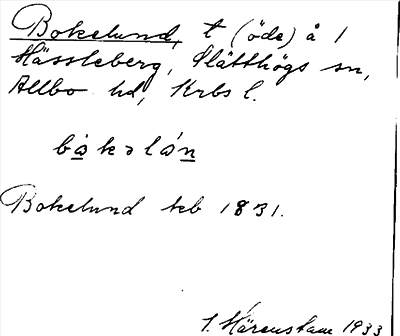 Bokelund, t (öde) å 1
Hässleberg, Slätthögs sn,
Allbo hd, Krbs l.
bo̊kəlón
Bokelund kb 1831.
J. Härenstam 1933